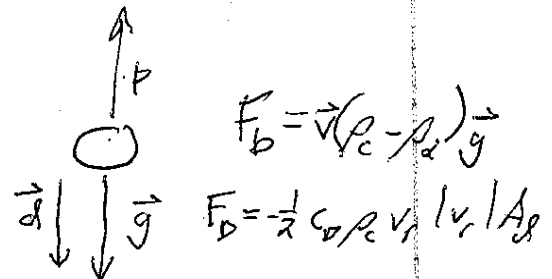 b
F_b = \vec{v}(ρ_c - ρ_d)\vec{g}
\vec{d} \vec{g} F_D = -\frac{1}{2} C_D ρ_c v_r |v_r| A_d